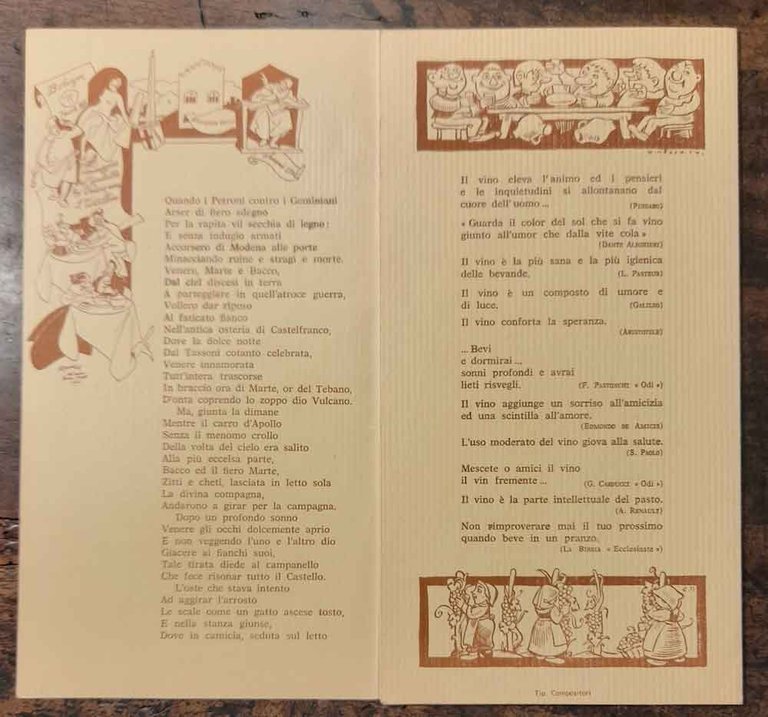 Bologna
Quando i Petroni contro i Geminiani
Arser di fiero sdegno
Per la rapita vil secchia di legno:
E senza indugio armati
Accorsero di Modena alle porte
Minacciando ruine e stragi e morte.
Venere, Marte e Bacco,
Dal ciel discesi in terra
A parteggiare in quell'atroce guerra,
Vollero dar riposo
Al faticato fianco
Nell'antica osteria di Castelfranco,
Dove la dolce notte
Dal Tassoni cotanto celebrata,
Venere innamorata
Tutt'intera trascorse
In braccio ora di Marte, or del Tebano,
D'onta coprendo lo zoppo dio Vulcano.
Ma, giunta la dimane
Mentre il carro d'Apollo
Senza il menomo crollo
Della volta del cielo era salito
Alla più eccelsa parte,
Bacco ed il fiero Marte,
Zitti e cheti, lasciata in letto sola
La divina compagna,
Andarono a girar per la campagna.
Dopo un profondo sonno
Venere gli occhi dolcemente aprio
E non veggendo l'uno e l'altro dio
Giacere ai fianchi suoi,
Tale tirata diede al campanello
Che fece risonar tutto il Castello.
L'oste che stava intento
Ad aggirar l'arrosto
Le scale come un gatto ascese tosto,
E nella stanza giunse,
Dove in camicia, seduta sul letto
Il vino eleva l'animo ed i pensieri
e le inquietudini si allontanano dal
cuore dell'uomo ... (Pindaro)
« Guarda il color del sol che si fa vino
giunto all'umor che dalla vite cola »
(Dante Alighieri)
Il vino è la più sana e la più igienica
delle bevande. (L. Pasteur)
Il vino è un composto di umore e
di luce. (Galileo)
Il vino conforta la speranza.
(Aristotele)
... Bevi
e dormirai ...
sonni profondi e avrai
lieti risvegli. (F. Pastonchi « Odi »)
Il vino aggiunge un sorriso all'amicizia
ed una scintilla all'amore.
(Edmondo de Amicis)
L'uso moderato del vino giova alla salute.
(S. Paolo)
Mescete o amici il vino
il vin fremente ... (G. Carducci « Odi »)
Il vino è la parte intellettuale del pasto.
(A. Renault)
Non rimproverare mai il tuo prossimo
quando beve in un pranzo.
(La Bibbia « Ecclesiaste »)
Tip. Compositori